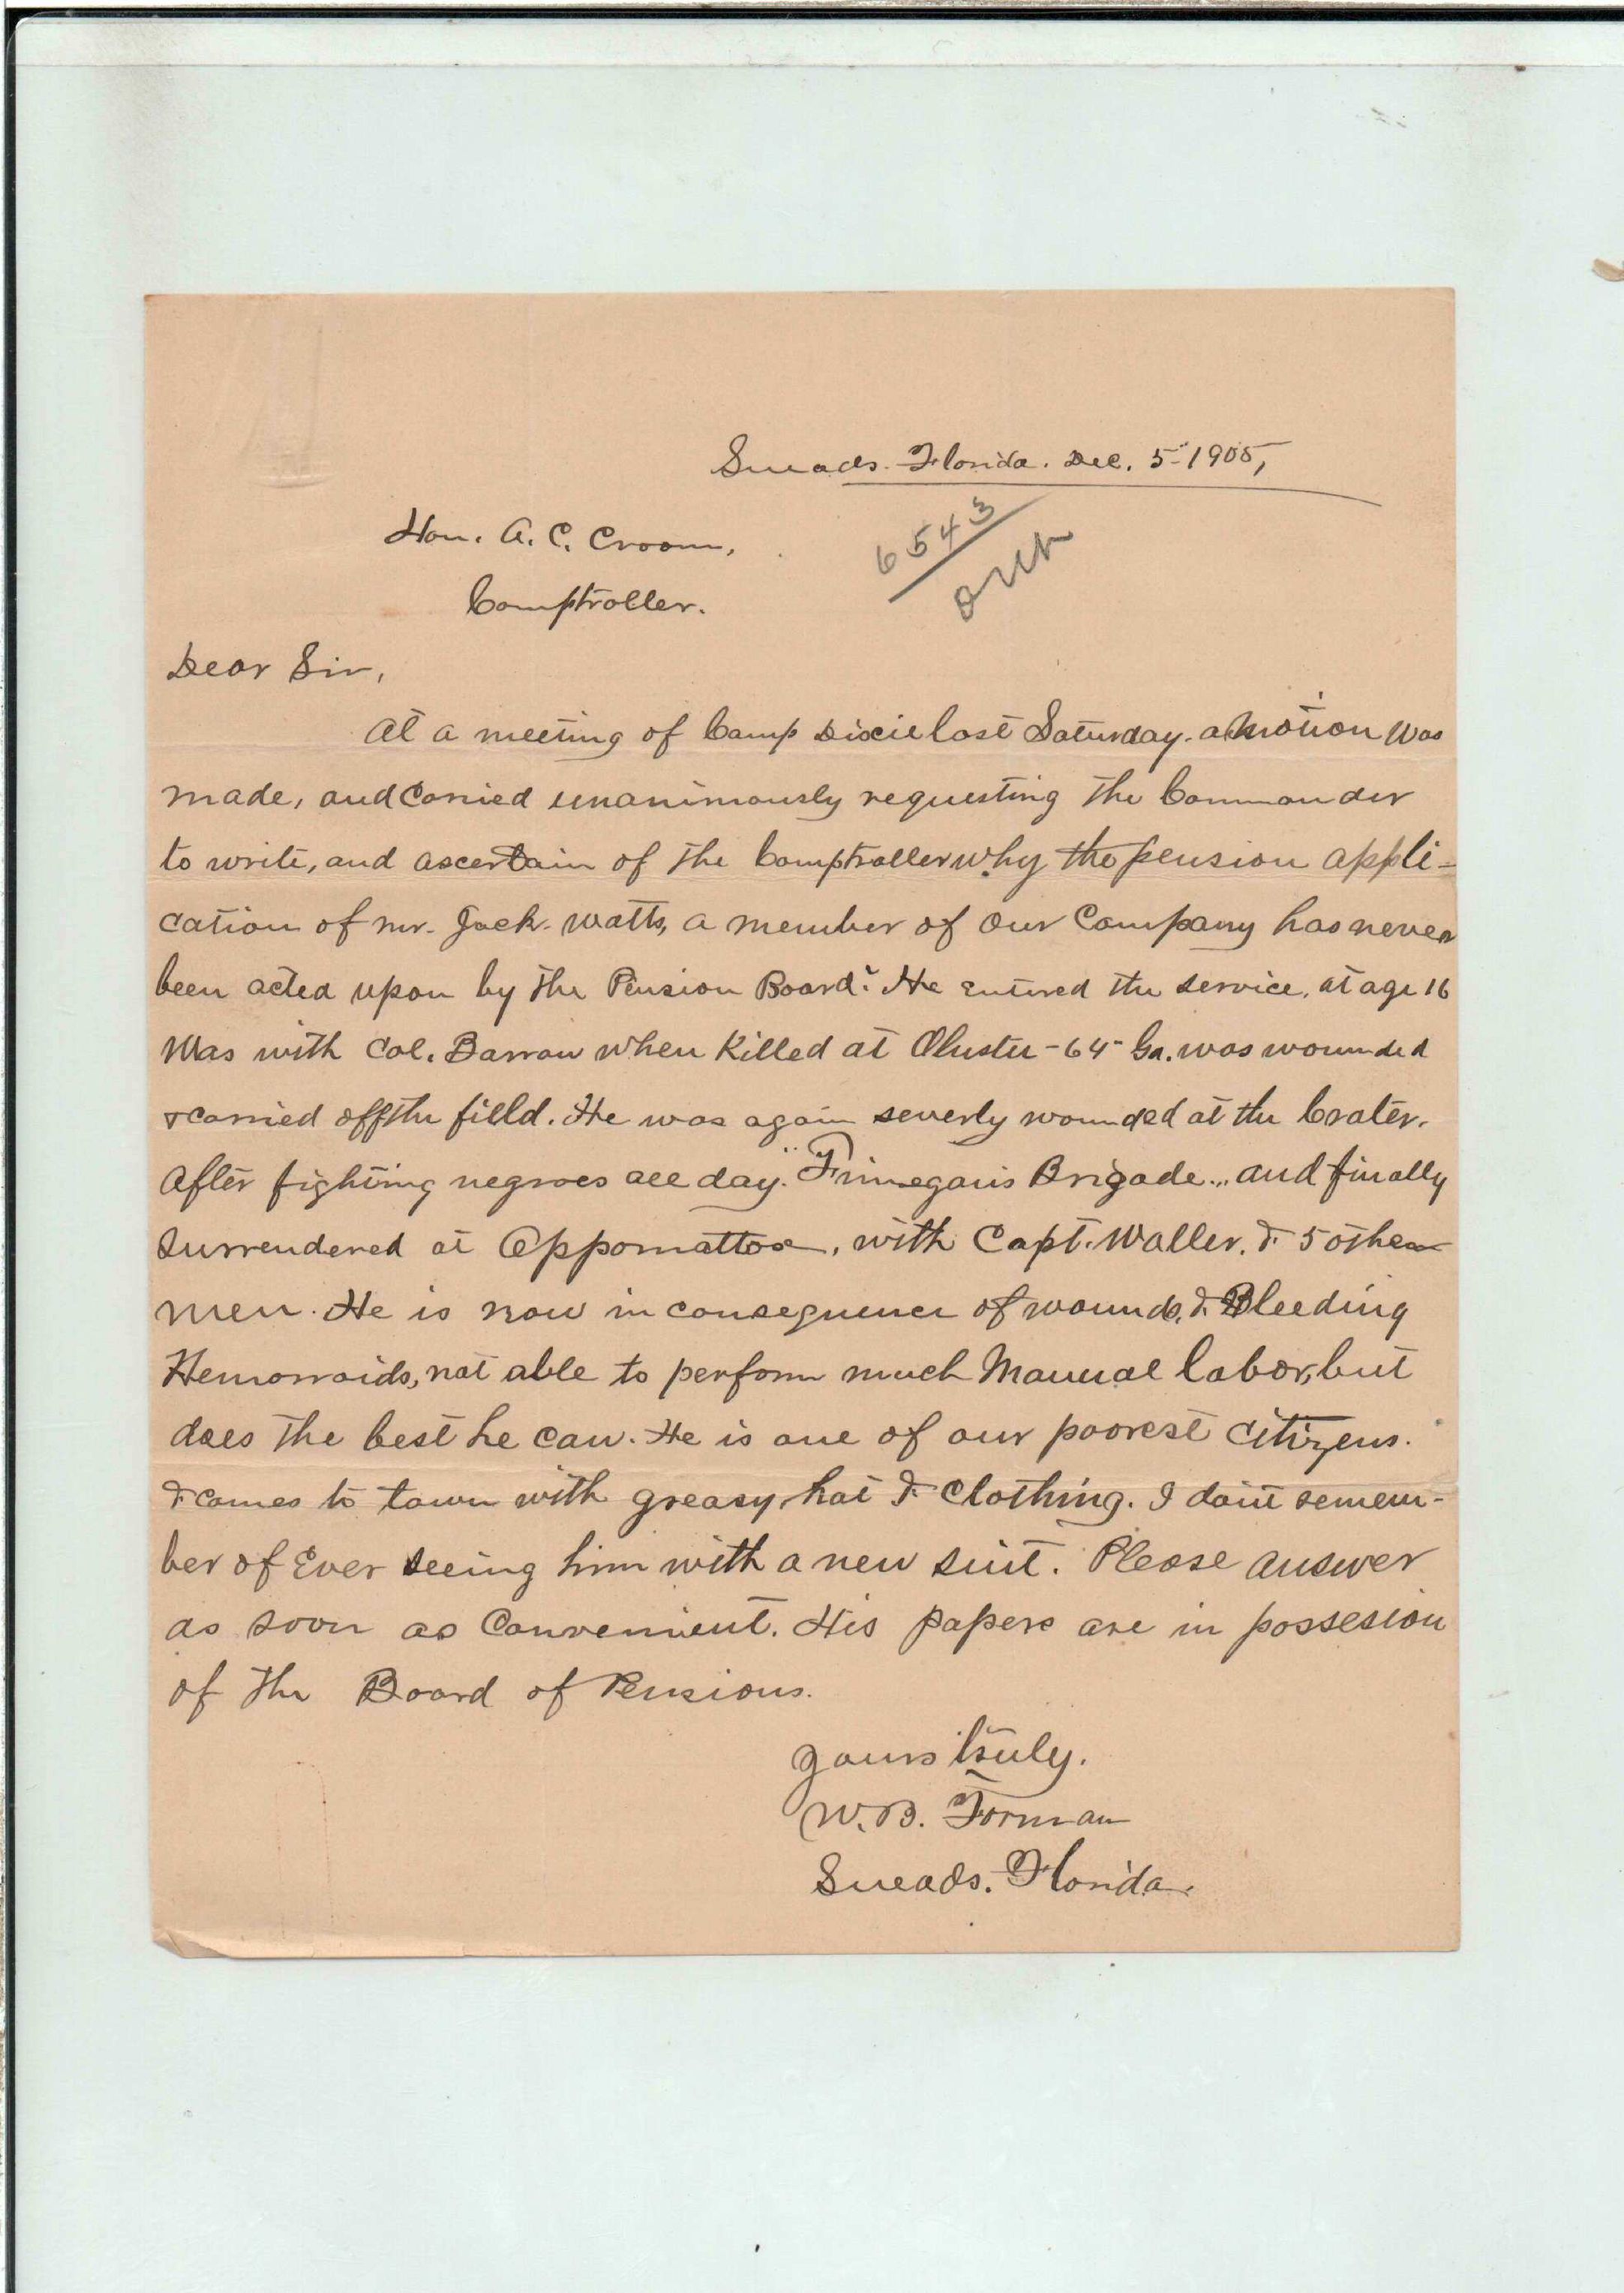 Sneads. Florida. Dec. 5" 1905,
6543
Hon. A. C. Croom,
Comptroller.
Dear Sir,
At a meeting of Camp Dixie last Saturday. a Motion Was
made, and Carried unanimously requesting the Commander
to write, and ascertain of the Comptroller why the pension appli-
cation of mr. Jack. Watts, a member of Our Company has never
been acted upon by the Pension Board? He Entered the service, at age 16
Was with Col. Barrow when Killed at Oluster - 64" Ga. was wounded
& carried off the filld. He was again severly wounded at the Crater.
After fighting negroes all day. "Finnegan's Brigade." and finally
Surrendered at Appomattox, with Capt. Waller. & 5 other
men. He is now in consequence of wounds, & Bleeding
Hemorroids, not able to perform much Manual labor, but
does the best he can. He is one of our poorest Citizens.
& comes to town with greasy hat & Clothing. I don't remem-
ber of Ever seeing him with a new suit. Please answer
as soon as Convenient. His papers are in possesion
of the Board of Pensions.
Yours truly.
W. B. Forman
Sneads. Florida.